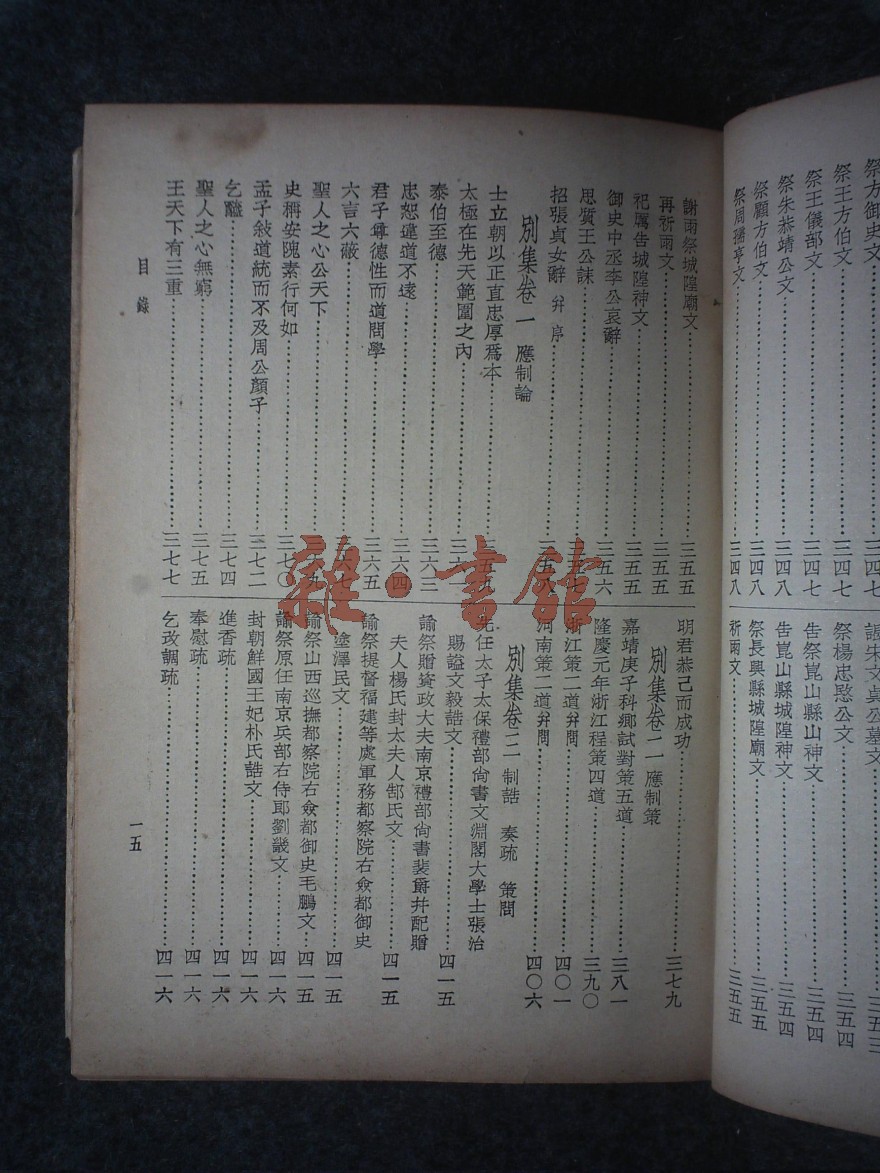 祭方御史文……三四七
祭王方伯文……三四七
祭王儀部文……三四七
祭朱恭靖公文……三四八
祭顧方伯文……三四八
祭周孺亨文……三四八
朱文貞公墓文……三五三
祭楊忠愍公文……三五四
告崑山縣山神文……三五四
告崑山縣城隍神文……三五四
祭長興縣城隍廟文……三五五
祈雨文……三五五
謝雨祭城隍廟文……三五五
再祈雨文……三五五
祀厲告城隍神文……三五五
御史中丞李公哀辭……三五六
思質王公誄……
招張貞女辭 幷序……三五八
別集卷一 應制論
士立朝以正直忠厚爲本……三五九
太極在先天範圍之內……三六
泰伯至德……三六三
忠恕違道不遠……三六四
君子尊德性而道問學……三六五
六言六蔽……三六七
聖人之心公天下……三六九
史稱安隗素行何如……三七〇
孟子敍道統而不及周公顏子……三七二
乞醯……三七四
聖人之心無窮……三七五
王天下有三重……三七七
明君恭己而成功……三七九
別集卷二 應制策
嘉靖庚子科鄉試對策五道……三八一
隆慶元年浙江程策四道……三九〇
浙江策二道幷問……四〇一
河南策二道幷問……四〇六
別集卷三 制誥 奏疏 策問
先任太子太保禮部尙書文淵閣大學士張治
賜謚文毅誥文……四一五
諭祭贈資政大夫南京禮部尙書裴爵幷配贈
夫人楊氏封太夫人郜氏文……四一五
諭祭提督福建等處軍務都察院右僉都御史
塗澤民文……四一五
諭祭山西巡撫都察院右僉都御史毛鵬文……四一五
諭祭原任南京兵部右侍郎劉畿文……四一六
封朝鮮國王妃朴氏誥文……四一六
進香疏……四一六
奉慰疏……四一六
乞改調疏……四一六
目錄
一五
雜·書館